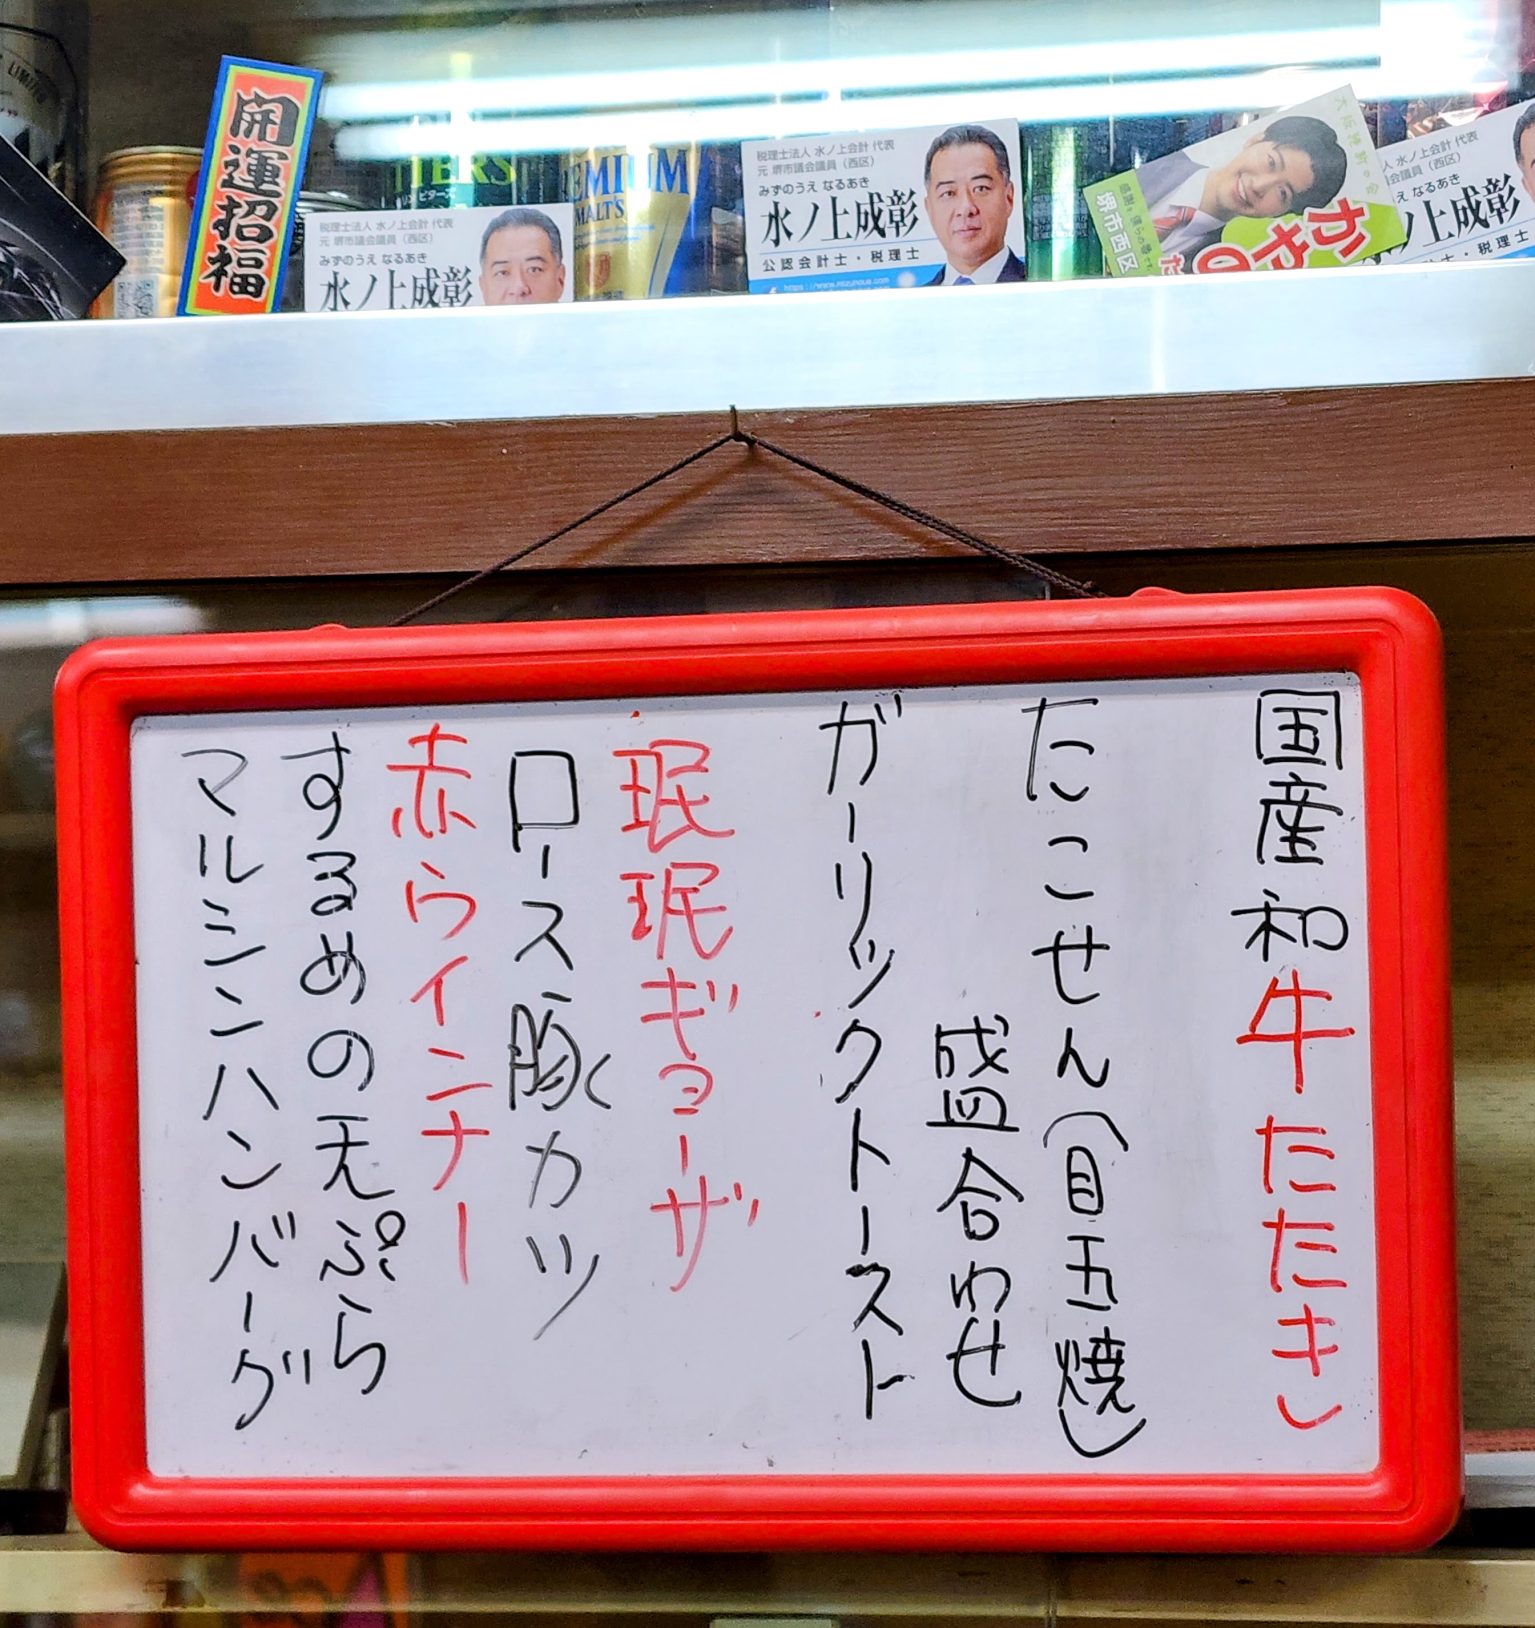 開運招福
LIMITED
税理士法人 水ノ上会計 代表
元 堺市議会議員（西区）
みずのうえ なるあき
水ノ上成彰
PREMIUM
MALT'S
税理士法人 水ノ上会計 代表
元 堺市議会議員（西区）
みずのうえ なるあき
水ノ上成彰
公認会計士・税理士
大阪維新の会
堺市西区
かや
税理士法人 水ノ上会計 代表
会議員（西区）
え なるあき
ノ上成彰
士・税理士
国産和牛たたき
たこせん（目玉焼）
盛合わせ
ガーリックトースト
珉珉ギョーザ
ロース豚カツ
赤ウインナー
するめの天ぷら
マルシンハンバーグ